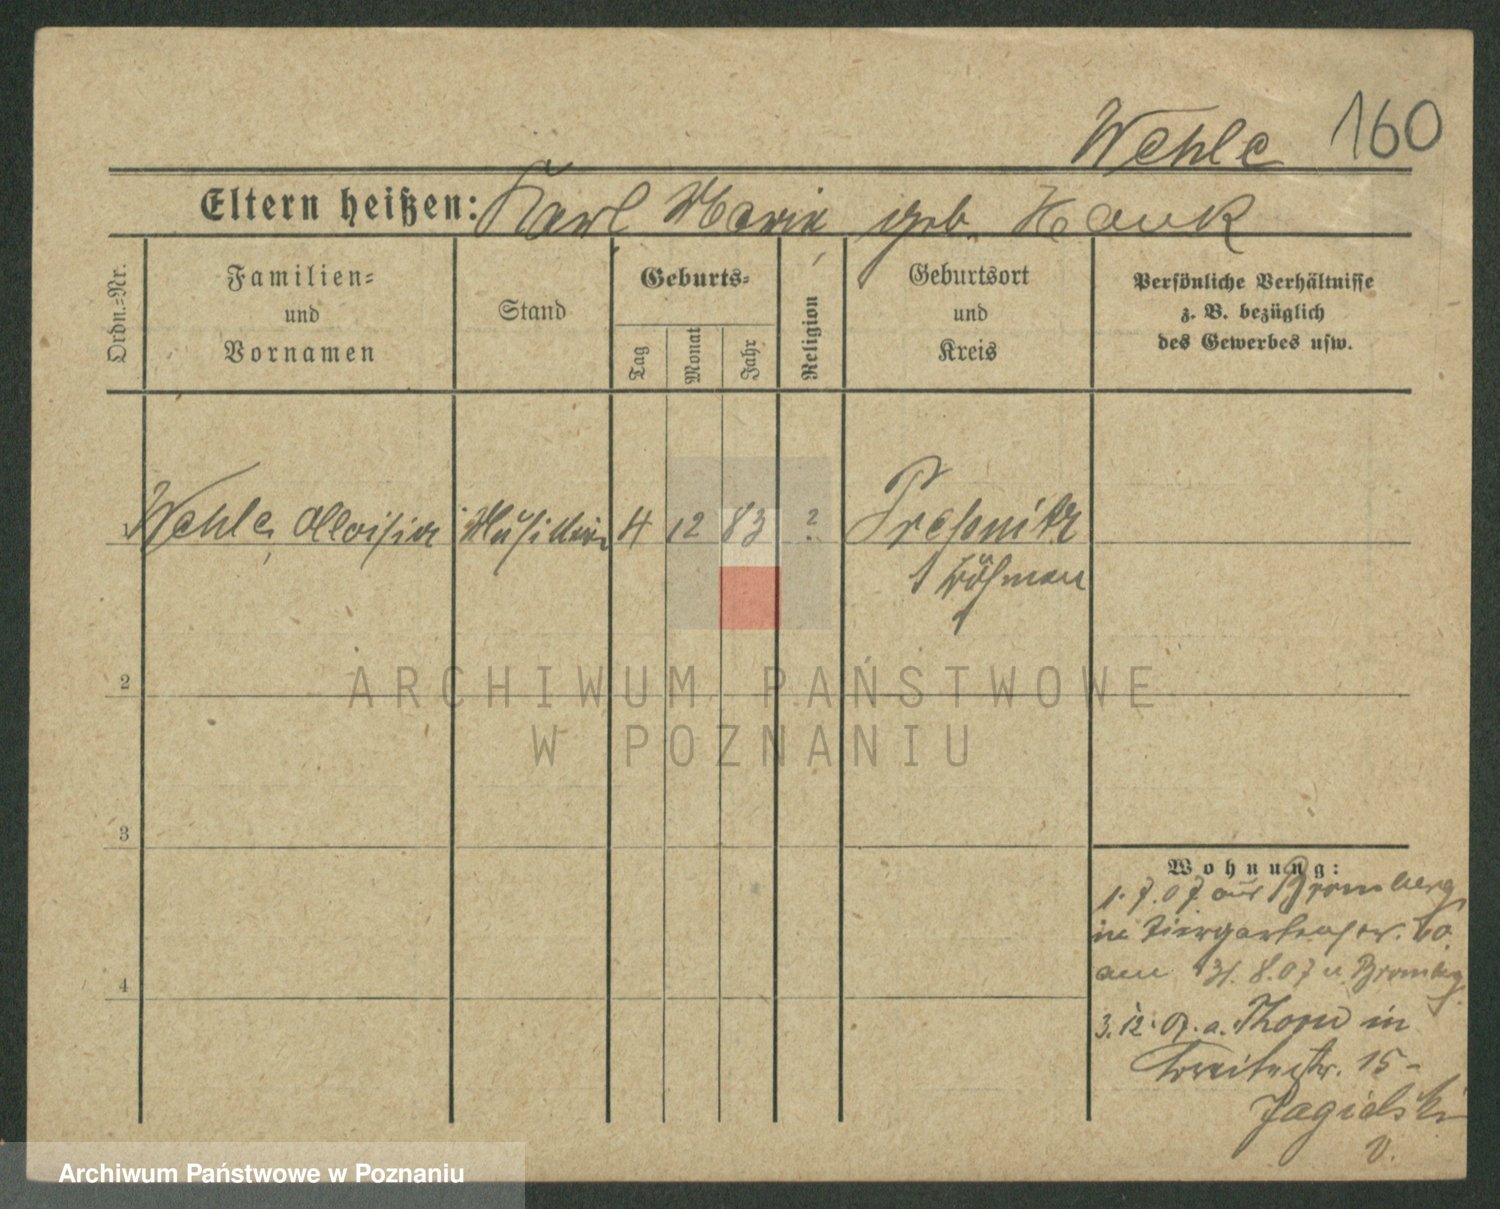 Wehle 160
Eltern heißen: Karl Marie geb. Hauk
Ordn.-Nr.
Familien-
und
Vornamen
Stand
Geburts-
Tag
Monat
Jahr
Religion
Geburtsort
und
Kreis
Persönliche Verhältnisse
z. B. bezüglich
des Gewerbes usw.
1 Wehle, Aloisia Musikerin 4 12 83 ? Pressnitz
Böhmen
2
ARCHIWUM PAŃSTWOWE
W POZNANIU
3
4
Wohnung:
1.7.07 aus Bromberg,
in Tiergartenstr.
am 31.8.07 n. Bromberg
3.12.07. a. Thorn in
Breitestr. 15-
Jagielski
v.
Archiwum Państwowe w Poznaniu